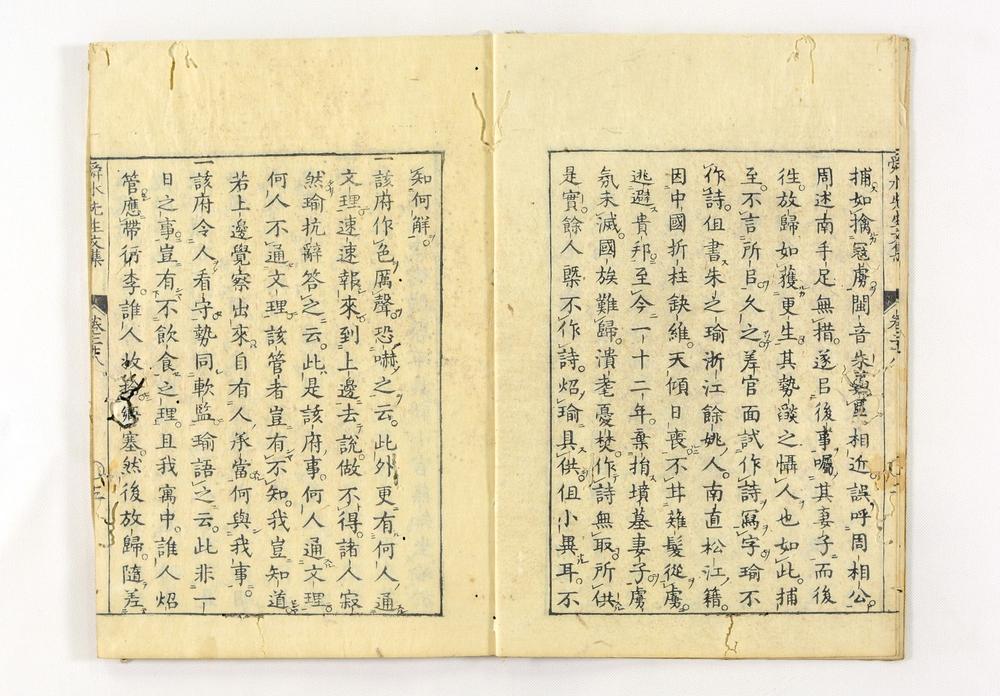 舜水先生文集 卷之廿八
捕如擒冦虜閩音朱 相近誤呼周相公
周述南手足無措遂㠯後事囑其妻子而後
徃放歸如獲更生其勢燄之懾人也如此捕
至不言所㠯久之差官面試作詩寫字瑜不
作詩但書朱之瑜浙江餘姚人南直松江籍
因中國折柱缺維天傾日喪不甘薙髮從虜
逃避貴邦至今一十二年棄捐墳墓妻子虜
氛未滅國族難歸潰耄憂焚作詩無取所供
是實餘人槩不作詩炤瑜具供但小異耳不
知何解
一該府作色厲聲恐嚇之云此外更有何人通
文理速速報來到上邊去說做不得諸人寂
然瑜抗辭答之云此是該府事何人通文理
何人不通文理該管者豈有不知我豈知道
若上邊覺察出來自有人承當何與我事
一該府令人看守勢同軟監瑜語之云此非一
日之事豈有不飲食之理且我寓中誰人炤
管應帶行李誰人收 塞然後放歸隨差
舜水先生文集 卷之廿八